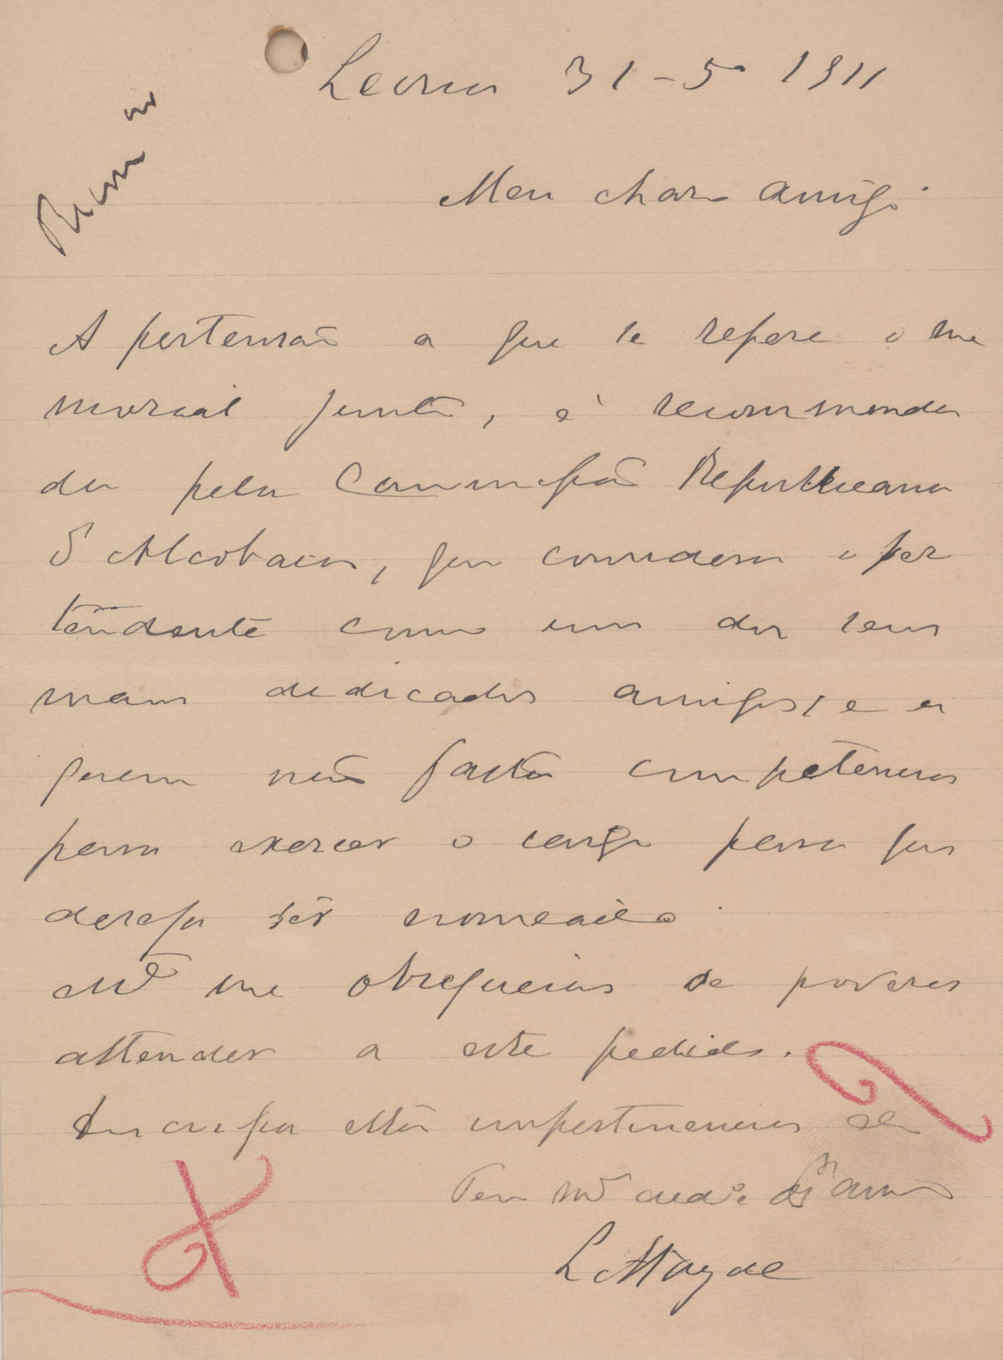 Leiria 31-5º 1911
Meu charo amigo
A pertensão a que se refere o me
morial junto, é recommenda
da pela Commissão Republicana
d'Alcobaca, que considera o per
tendente como um dos seus
mais dedicados amigos, e a
quem não falta competencia
para exercer o cargo para que
deseja ser nomeado.
Mtº me obsequeias se poderes
attender a este pedido.
Desculpa esta impertinencia de
Teu mtº ded.º amº